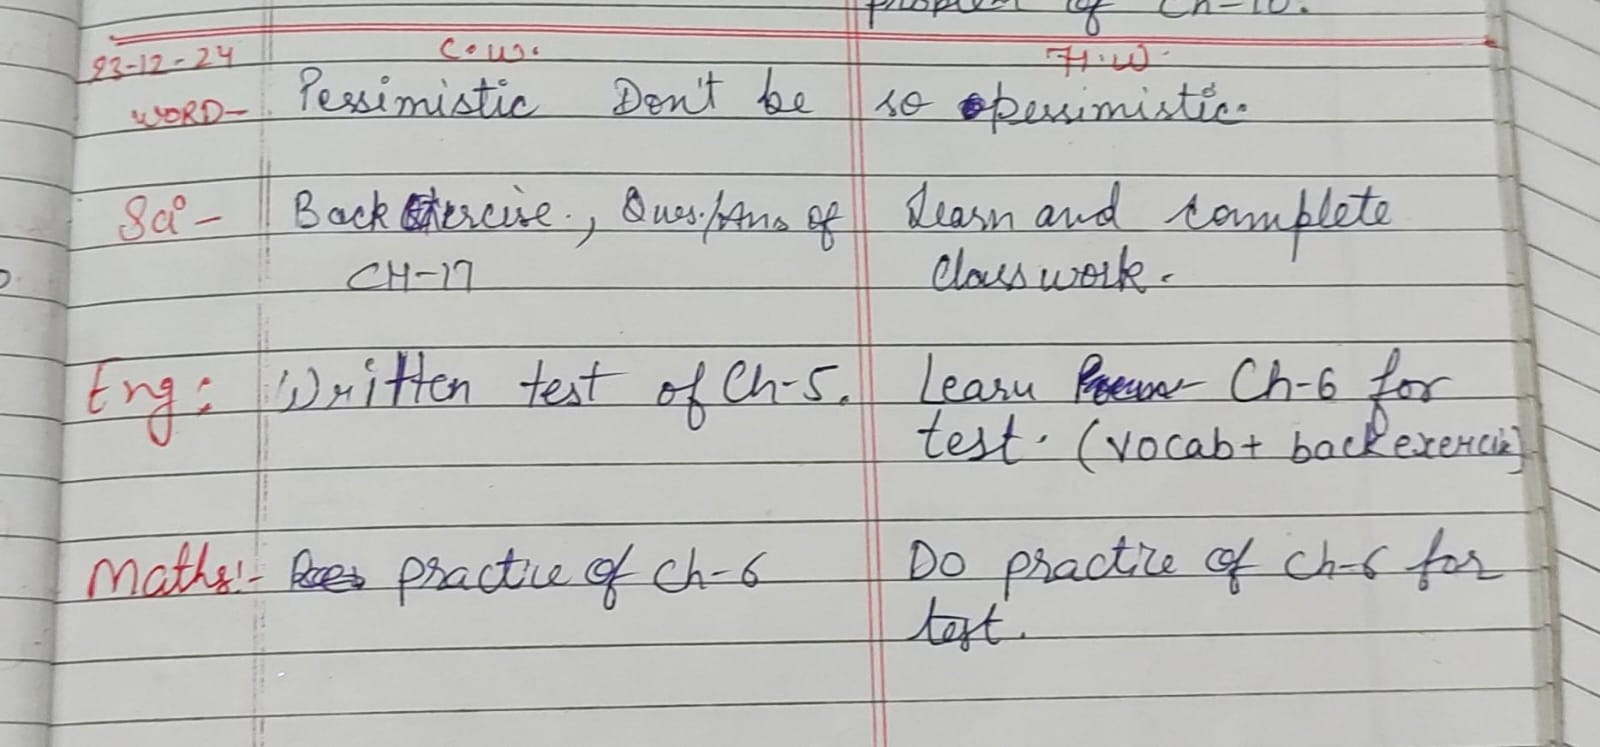 problem of Ch-10.
23-12-24 C.W. H.W.
WORD- Pessimistic Don't be so pessimistic.
Sci- Back Exercise., Ques./Ans of Learn and complete
CH-17 Class work.
Eng: Written test of Ch-5. Learn Ch-6 for
test. (vocab+ back exercise)
Maths:- practice of Ch-6 Do practice of ch-6 for
test.